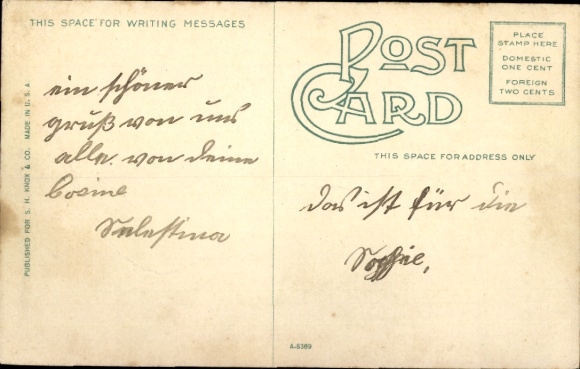 THIS SPACE FOR WRITING MESSAGES
POST
CARD
PLACE
STAMP HERE
DOMESTIC
ONE CENT
FOREIGN
TWO CENTS
THIS SPACE FOR ADDRESS ONLY
PUBLISHED FOR S. H. KNOX & CO. MADE IN U. S. A.
ein schöner
gruß von uns
alle. von deine
Selestina
das ist für die
Sophie.
A-6389